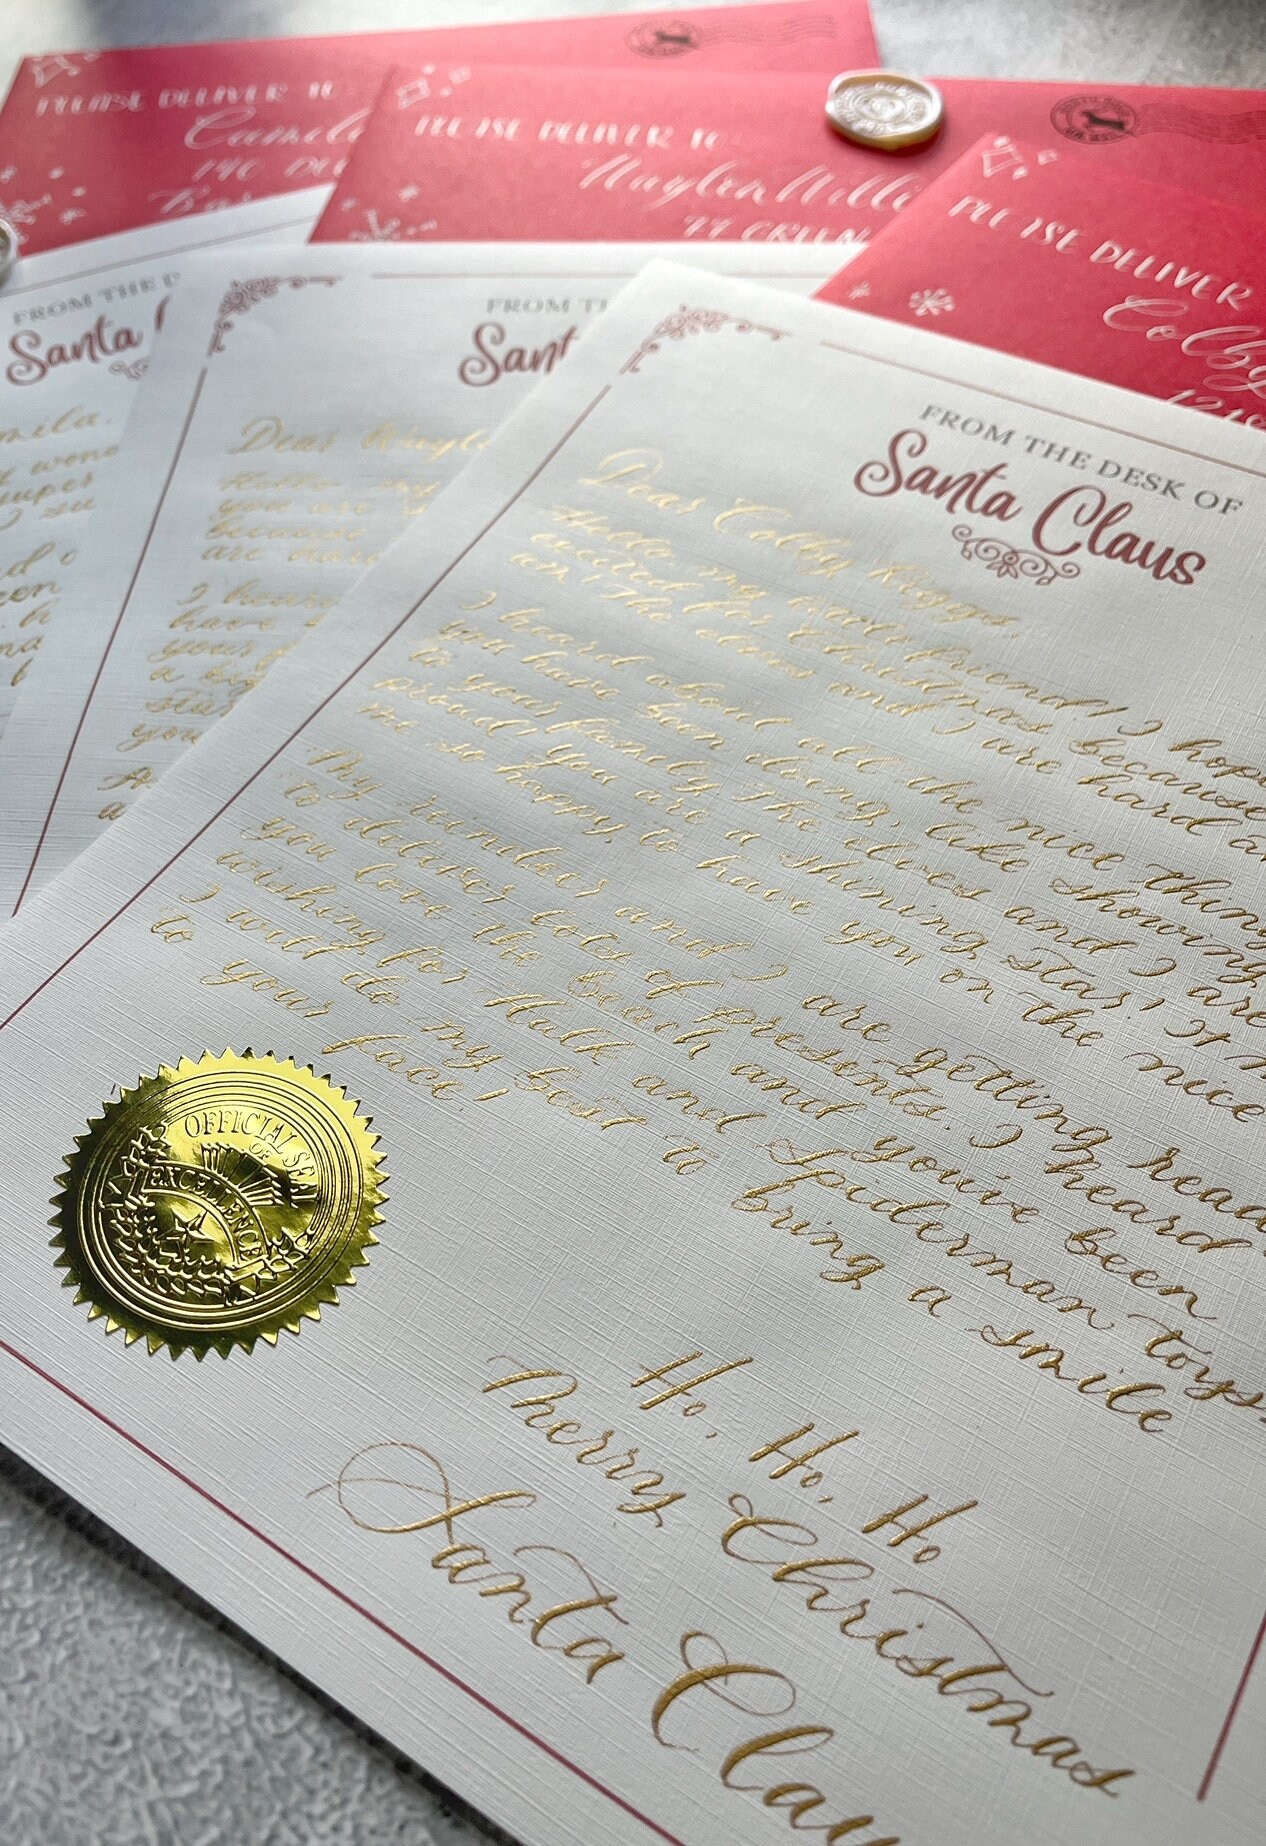 PLEASE DELIVER TO
Camil
140 DU
PLEASE DELIVER TO
Waylen Willi
77 GREEN
PLEASE DELIVER
Colby
1218
FROM THE D
Santa
mila,
super
FROM TH
Sant
Dear Wayle
Hello my
you are
because
are hard
I hear
have
your
a big
star
you
FROM THE DESK OF
Santa Claus
Dear Colby Riggs,
Hello my sweet friend! I hope
excited for Christmas because
am! The elves and I are hard a
I heard about all the nice thing
you have been doing, like showing
to your family. The elves and I are
proud! You are a shining star! It m
me so happy to have you on the nice
My reindeer and I are getting read
to deliver lots of presents. I heard
you love the beach and you've been
wishing for Hulk and Spiderman toys.
I will do my best to bring a smile
to your face!
OFFICIAL SEAL
OF
EXCELLENCE
Ho, Ho, Ho
Merry Christmas
Santa Clau